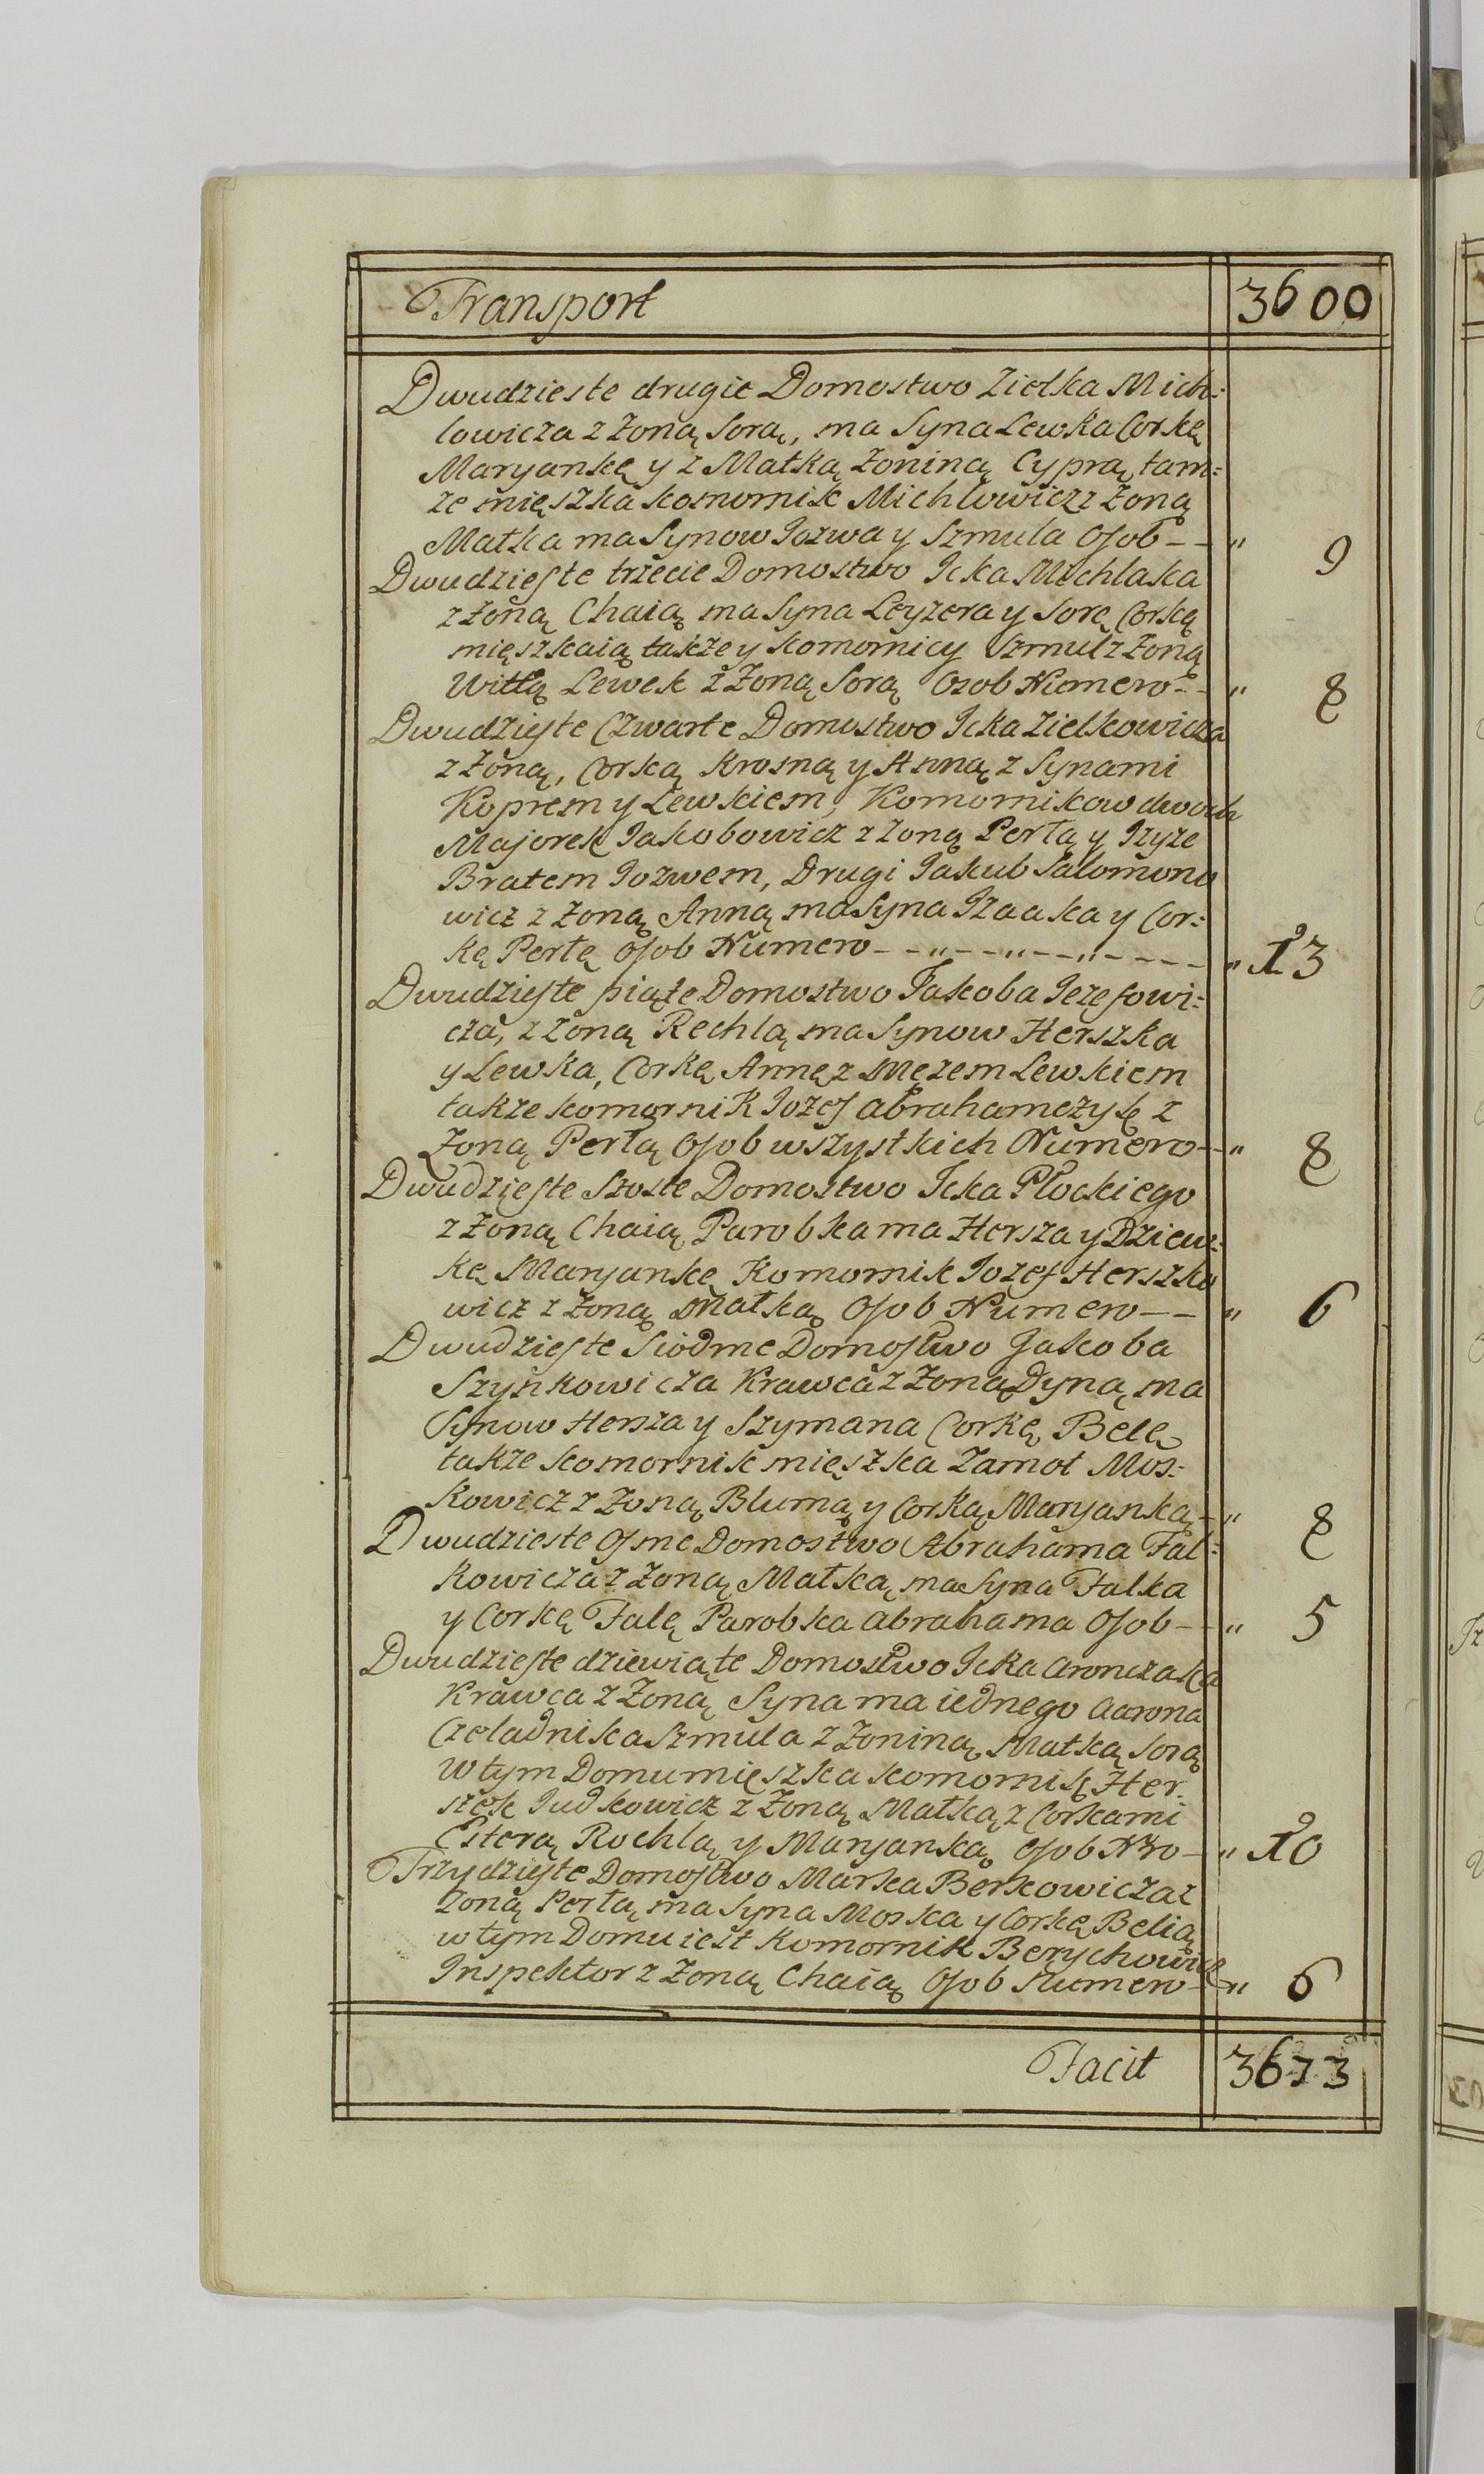 Transport 3600
Dwudzieste drugie Domostwo Zielka Mich:
lowicza z Zoną Sorą, ma Syna Lewka Corkę
Maryankę y z Matką Zoniną Cyprą tam:
ze mięszka komornik Michlowicz z Zoną
Matka ma Synow Jozwa y Szmula Osob -- " 9
Dwudzieste trzecie Domostwo Icka Michlaka
z Zoną Chaią ma Syna Leyzera y Sorę Corkę
mięszkaią także y komornicy Szmul z Zoną
Witlą Lewek z Zoną Sorą Osob Numero -- " 8
Dwudzieste Czwarte Domostwo Icka Zielkowicza
z Zoną, Corką Krosną y Anną z Synami
Koprem y Lewkiem, Komornikow dwoch
Majorek Jakobowicz z Zoną Perłą y Izyze
Bratem Jozwem, Drugi Jakub Salomono
wicz z Zoną Anną ma Syna Izaaka y Cor:
kę Perłę Osob Numero -- " -- " -- " ---- " 13
Dwudzieste piąte Domostwo Jakoba Jezefowi:
cza, z Zoną Rechlą ma Synow Herszka
y Lewka, Corkę Annę z Męzem Lewkiem
także komornik Jozef Abrahamczyk z
Zoną Perłą Osob wszystkich Numero -- " 8
Dwudzieste Szoste Domostwo Icka Płockiego
z Zoną Chaią Parobka ma Hersza y Dziew:
kę Maryankę Komornik Jozef Herszko
wicz z Zoną Matką Osob Numero -- " 6
Dwudzieste Siodme Domostwo Jakoba
Szynkowicza Krawca z Zoną Dyną ma
Synow Hersza y Szymana Corkę Belę
także komornik mięszka Zamot Mos:
kowicz z Zoną Blumą y Corką Maryanką - " 8
Dwudzieste Osme Domostwo Abrahama Fal:
kowicza z Zoną Matką ma Syna Falka
y Corkę Falę Parobka Abrahama Osob -- " 5
Dwudzieste dziewiąte Domostwo Icka Aronczaka
Krawca z Zoną Syna ma iednego Aarona
Czeladnika Szmula z Zoniną Matką Sorą
w tym Domu mięszka komornik Her:
szek Judkowicz z Zoną Matką z Corkami
Esterą Rochlą y Maryanką Osob Nro - " 10
Trzydzieste Domostwo Marka Berkowicza z
Zoną Perłą ma Syna Moska y Corkę Belią
w tym Domu iest Komornik Berychowicz
Inspektor z Zoną Chaią Osob Numero - " 6
Facit 3673